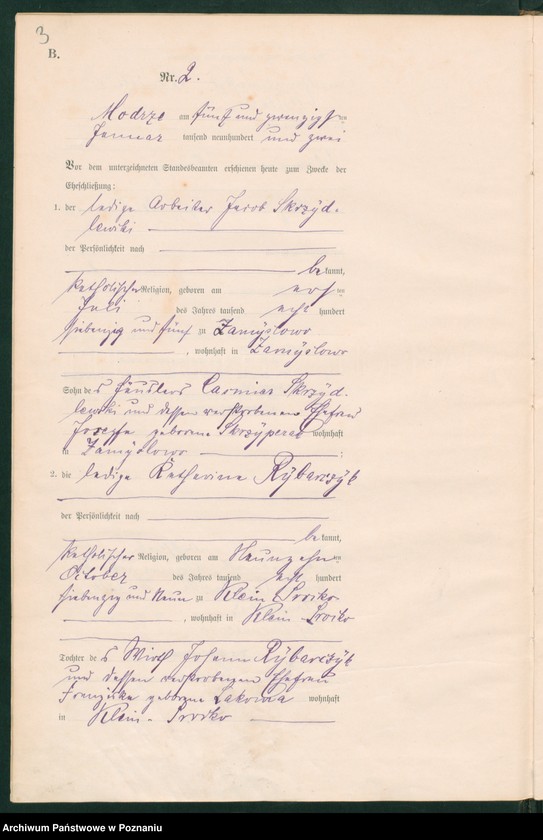 3
B.
Nr. 2.
Modrze am fünf und zwanzigsten
Januar tausend neunhundert und zwei
Vor dem unterzeichneten Standesbeamten erschienen heute zum Zwecke der
Eheschließung:
1. der ledige Arbeiter Jacob Skrzyd-
lewski
der Persönlichkeit nach
bekannt,
katholischer Religion, geboren am ersten
Juli des Jahres tausend acht hundert
siebenzig und fünf zu Zamyslowo
, wohnhaft in Zamyslowo
Sohn des Häuslers Casmiar Skrzyd-
lewski und dessen verstorbenen Ehefrau
Josefa geborene wohnhaft
in Zamyslowo ;
2. die ledige Katharina Rybarczyk
der Persönlichkeit nach
bekannt,
katholischer Religion, geboren am Neunzehnten
October des Jahres tausend acht hundert
siebenzig und Neun zu Klein-Srocko
, wohnhaft in Klein-Srocko
Tochter des Wirth Johann Rybarczyk
und dessen verstorbenen Ehefrau
Franziska geborene wohnhaft
in Klein-Srocko
Archiwum Państwowe w Poznaniu